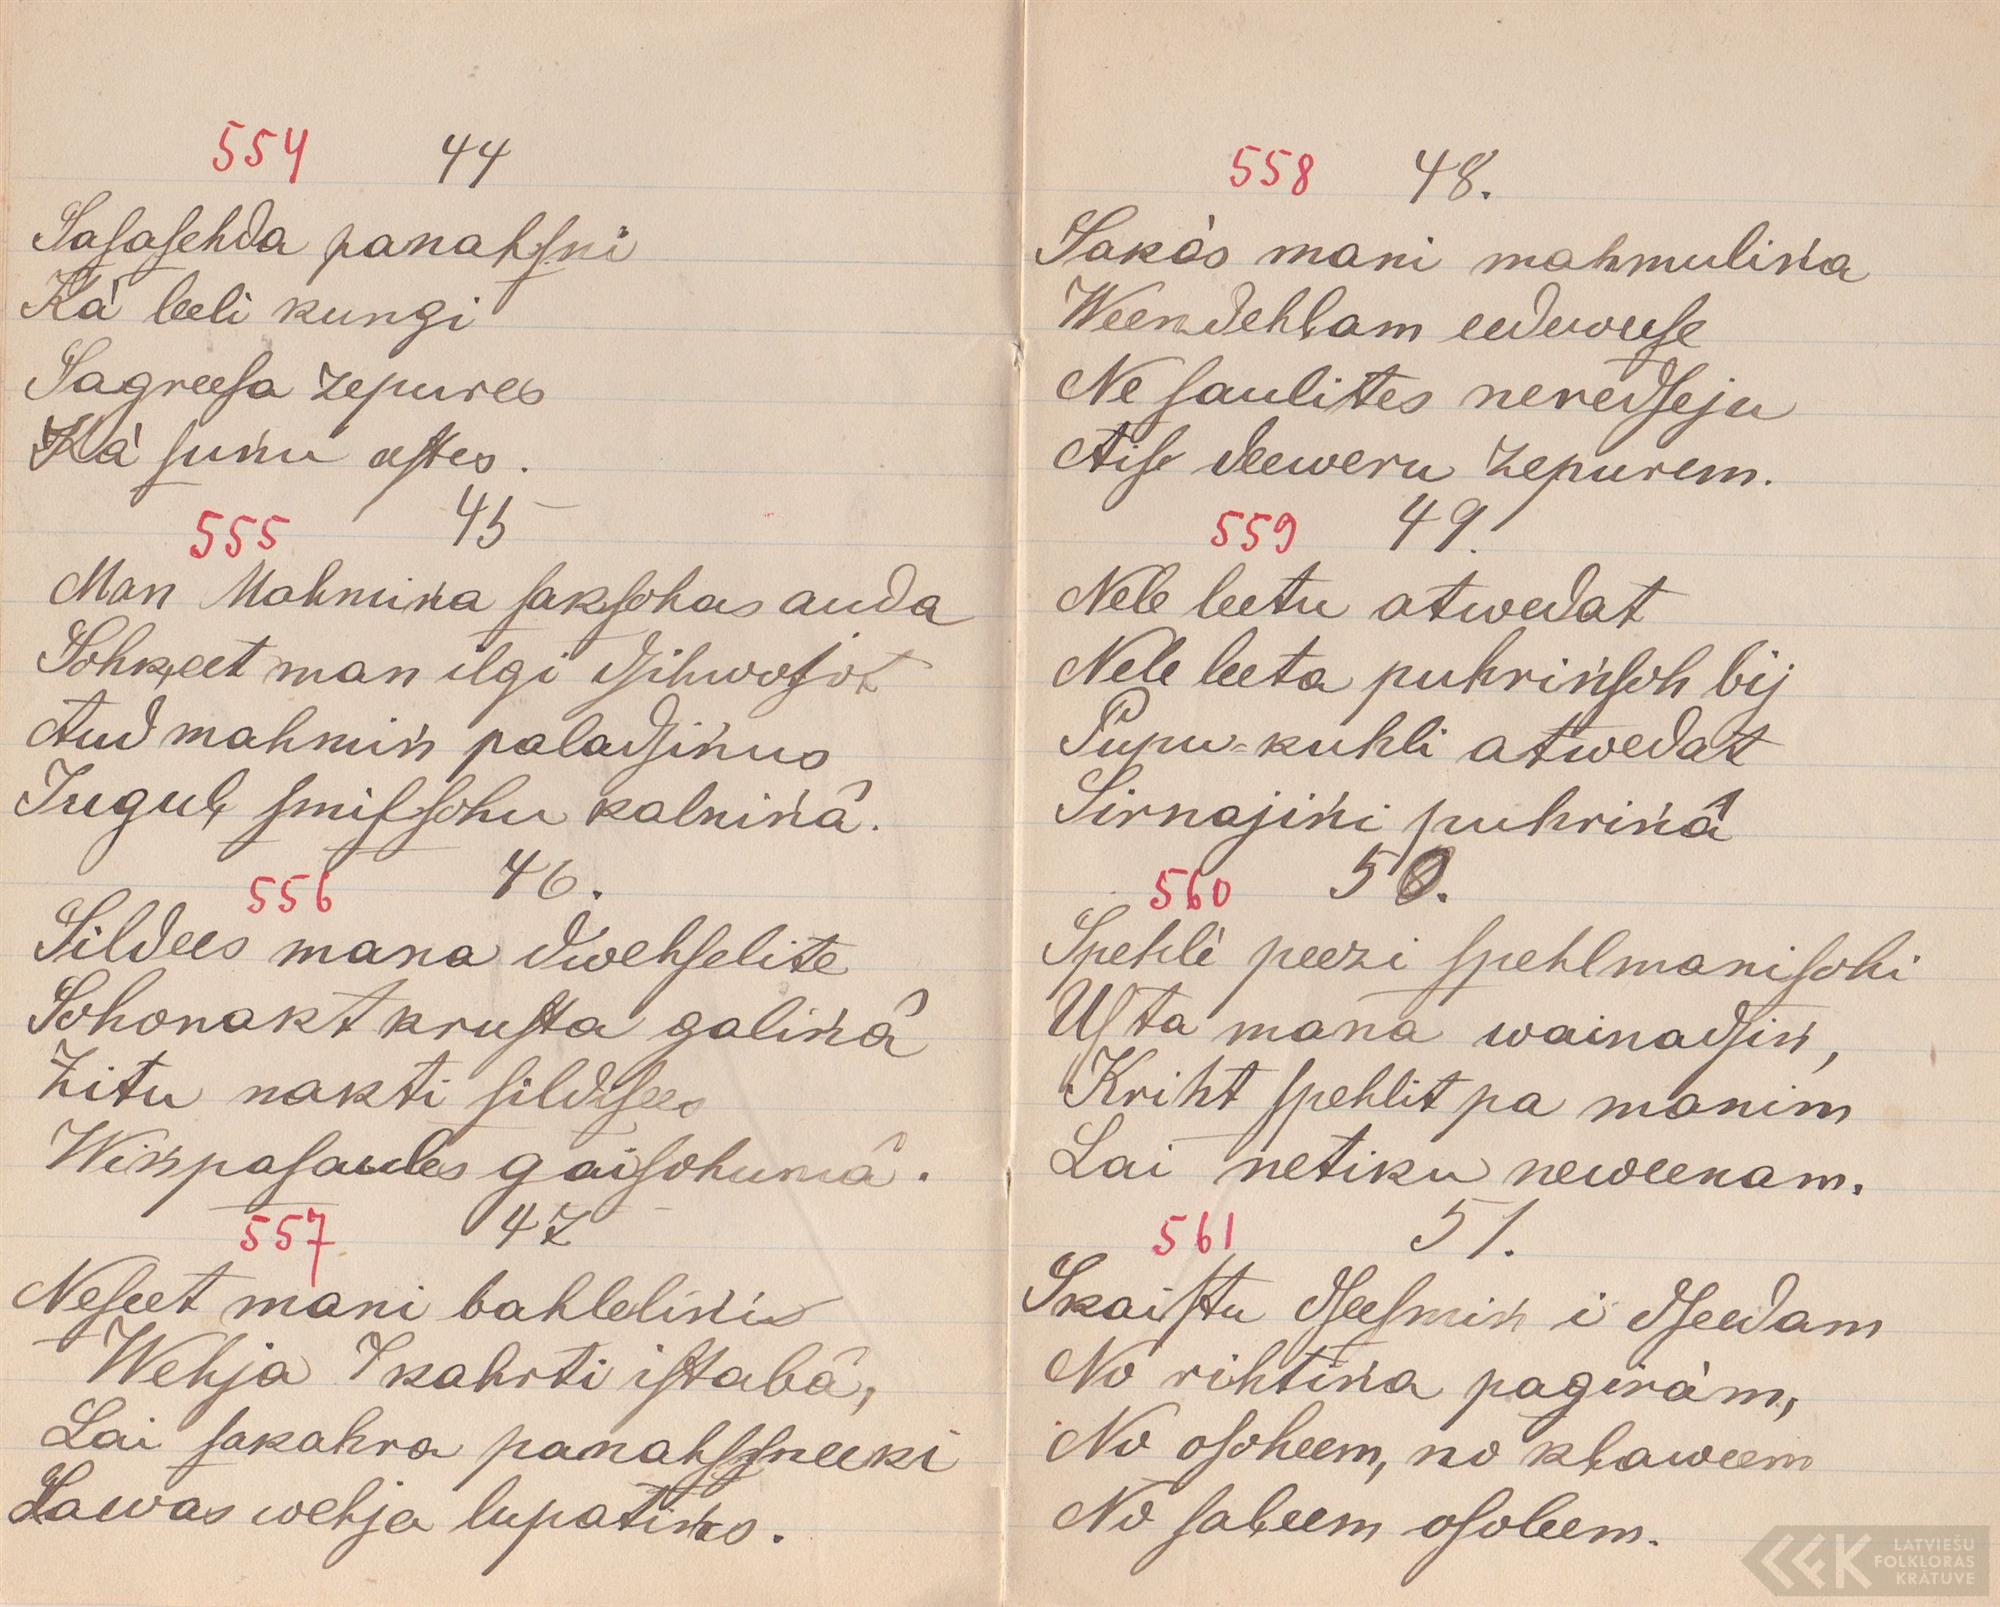 554 44
Sasasehda panahsni
Kà leeli kungi
Sagreesa zepures
Kà suńu astes.
555 45
Man Mahmińa saksohas auda
Sohkeet man ilgi dsihwosjot
Aud mahmiń paladsińus
Jugul smilsohu kalnińâ.
556 46.
Sildees mana dwehselite
Sohonakt krusta galińâ
Zitu nakti sildsees
Wińpasaules gaisohumâ.
557 47
Neseet mani bahlelińis
Wehja Ikahrti istabâ,
Lai sakahra panahssneeki
Sawas wehja lupatińas.
558 48.
Sakàs mani mahmulińa
Weendehlam eedewuse
Ne saulites neredseju
Aise deeweru zepurem.
559 49.
Nele leetu atwedat
Nele leeta puhrińsoh bij
Pupu-kuhli atwedat
Sirnajińi puhrińâ
560 50.
Spehlè peezi spehlmanisohi
Usta mana wainadsiń,
Kriht spehlit pa manim
Lai netiku neweenam.
561 51.
Skaistu dseesmiń i dseedam
No rihtińa pagiràm,
No osoheem, no klaweem
No saleem osoleem.
LATVIEŠU
FOLKLORAS
KRĀTUVE